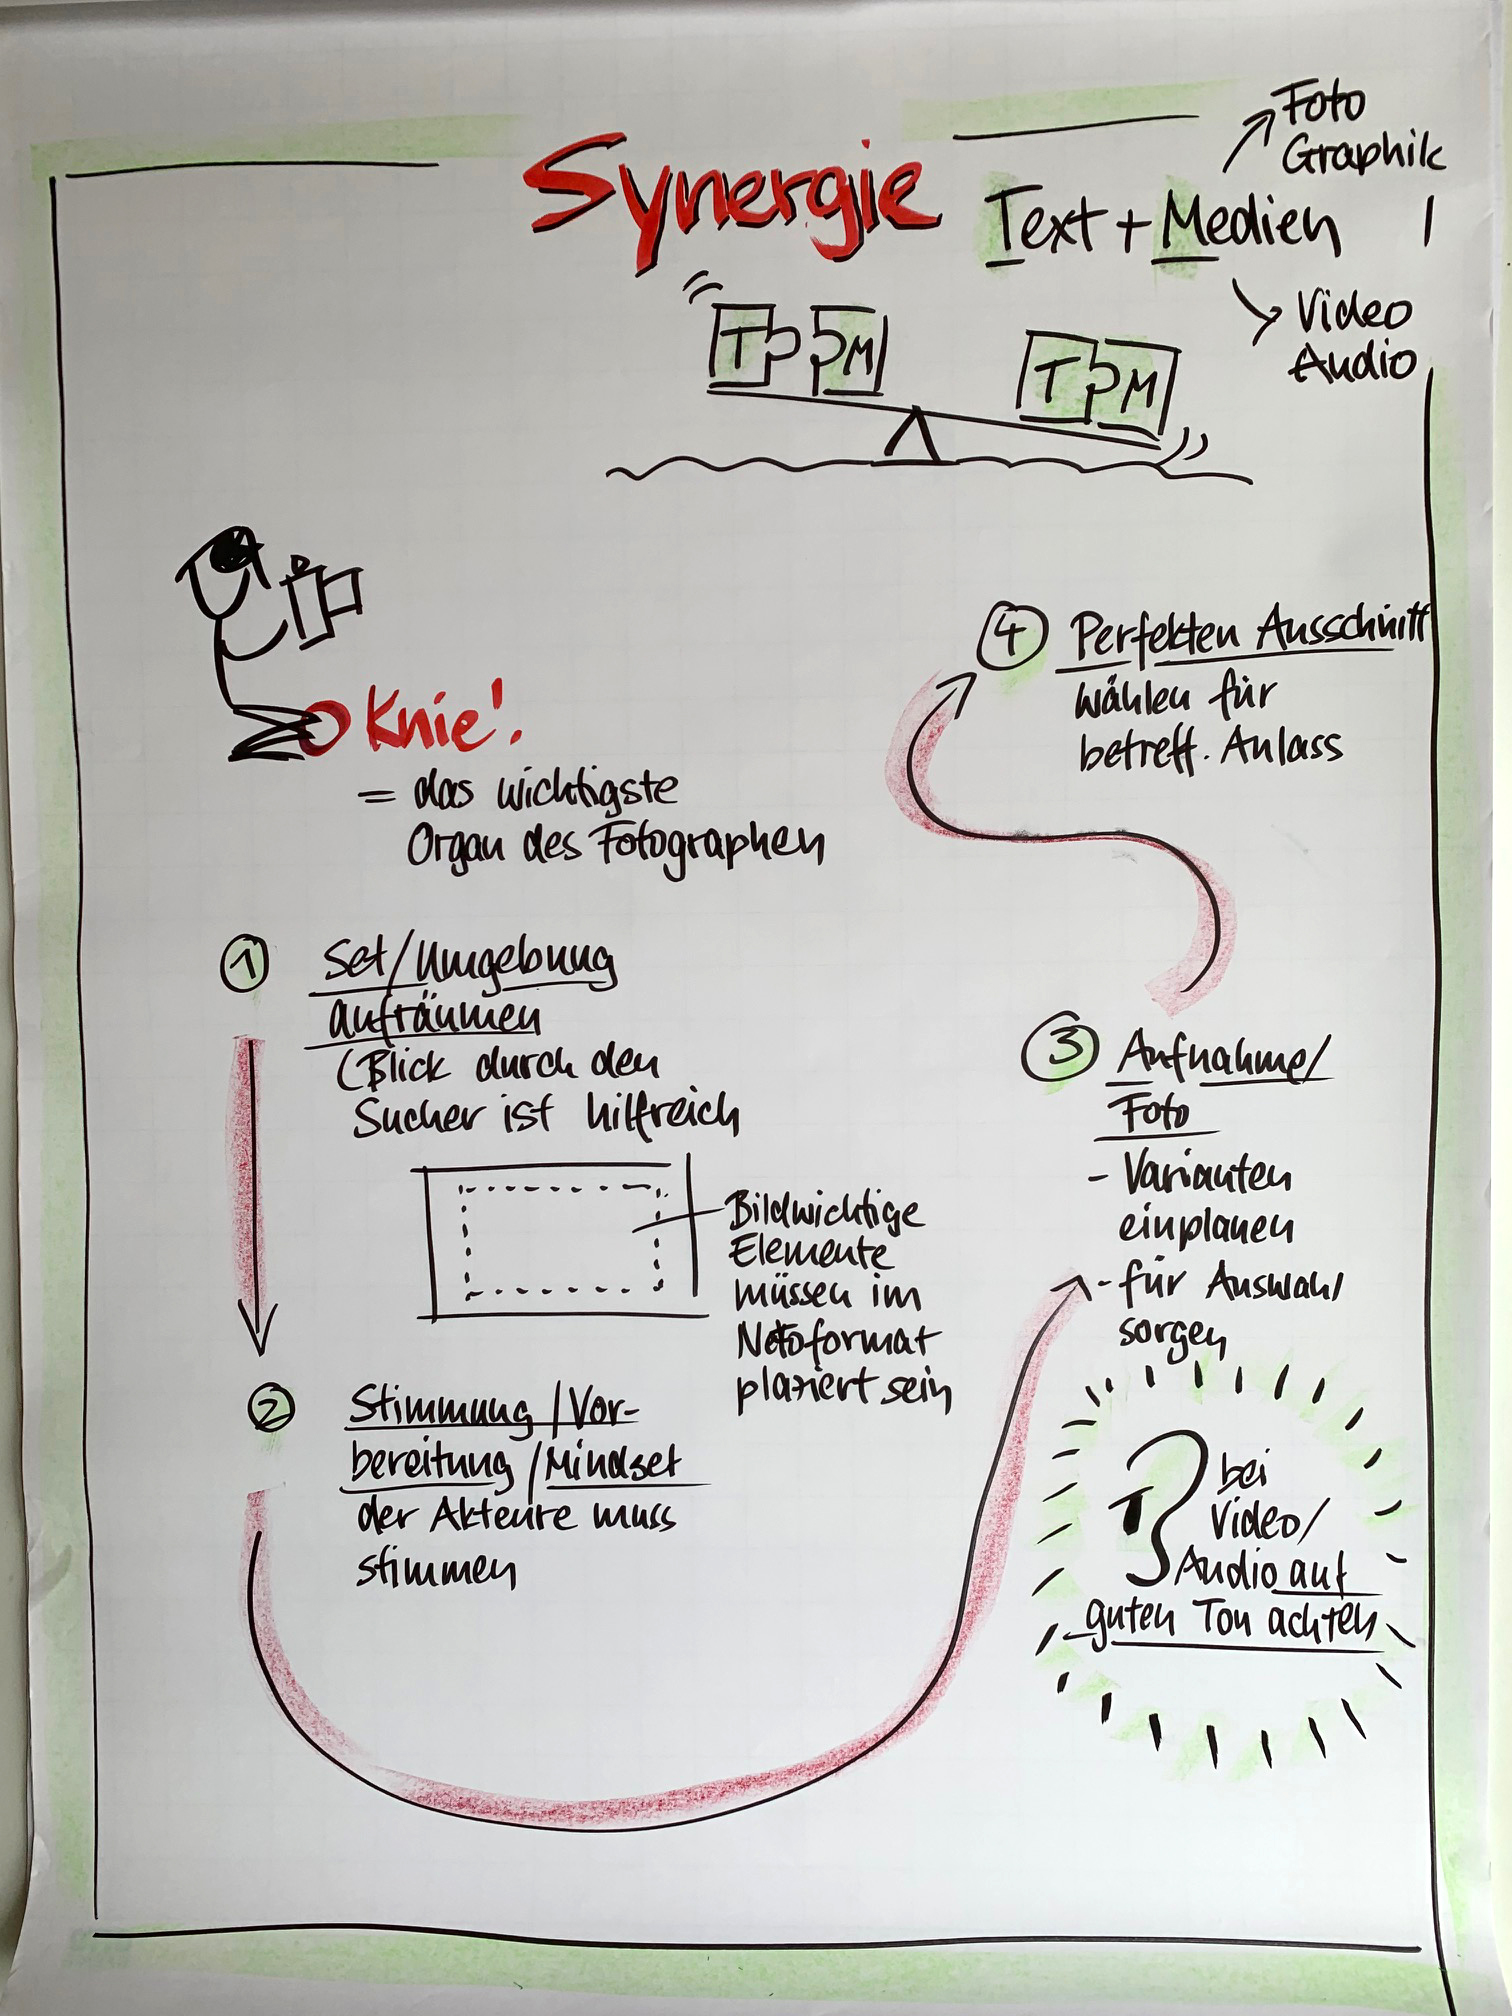 Synergie
Text + Medien
Foto
Graphik
Video
Audio
T M
T M
Knie!
= das wichtigste
Organ des Fotographen
1 Set/Umgebung
aufräumen
(Blick durch den
Sucher ist hilfreich
Bildwichtige
Elemente
müssen im
Nettoformat
plaziert sein
2 Stimmung/Vor-
bereitung/Mindset
der Akteure muss
stimmen
3 Aufnahme/
Foto
- Varianten
einplanen
- für Auswahl
sorgen
bei
Video/
Audio auf
guten Ton achten
4 Perfekten Ausschnitt
wählen für
betreff. Anlass